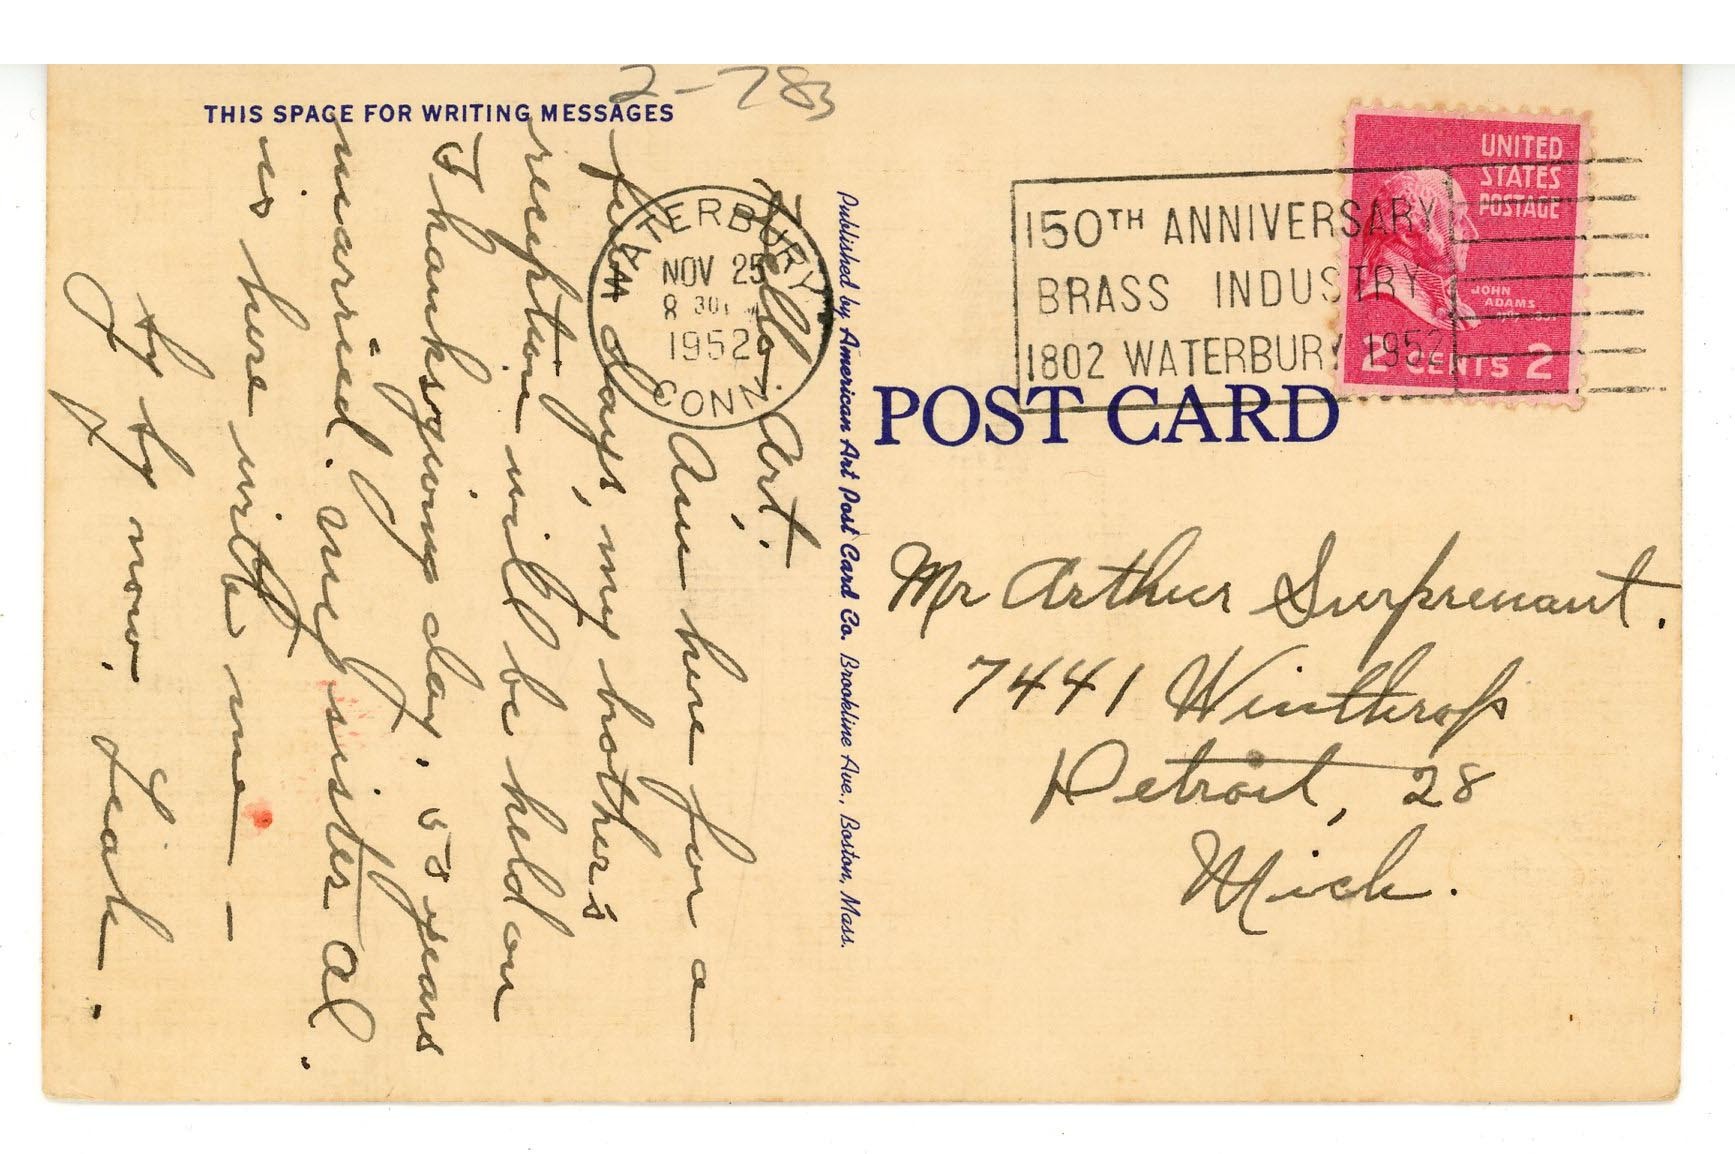 2-783
THIS SPACE FOR WRITING MESSAGES
Hello, Art.
Am here for a
few days, my brother's
reception will be held on
Thanksgiving day. 53 years
married. my sister al.
is here with me —
by by now. Leah.
WATERBURY
NOV 25
8 30
1952
CONN
Published by American Art Post Card Co. Brookline Ave., Boston, Mass.
150TH ANNIVERSARY
BRASS INDUSTRY
1802 WATERBURY 1952
UNITED
STATES
POSTAGE
JOHN
ADAMS
2 CENTS 2
POST CARD
Mr Arthur Surprenant.
7441 Winthrop
Detroit, 28
Mich.